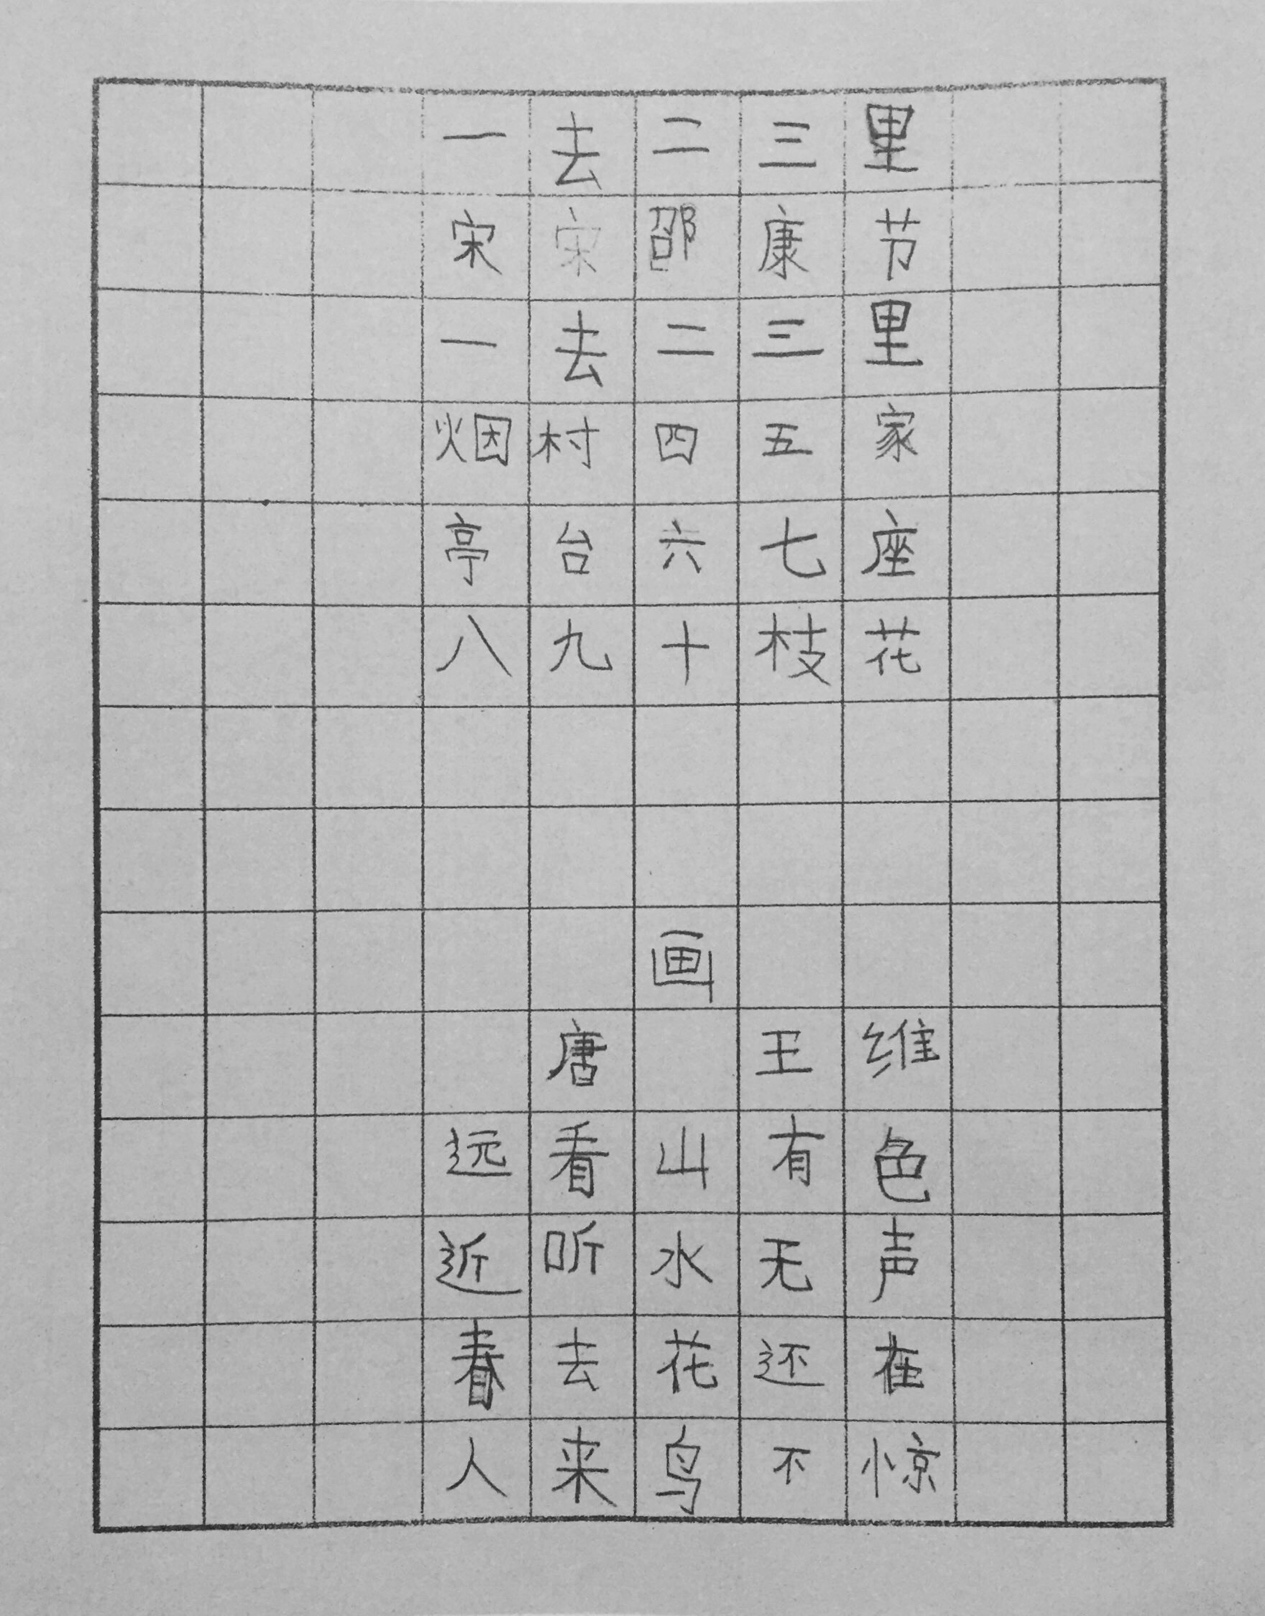 一去二三里
宋宋邵康节
一去二三里
烟村四五家
亭台六七座
八九十枝花
画
唐 王维
远看山有色
近听水无声
春去花还在
人来鸟不惊